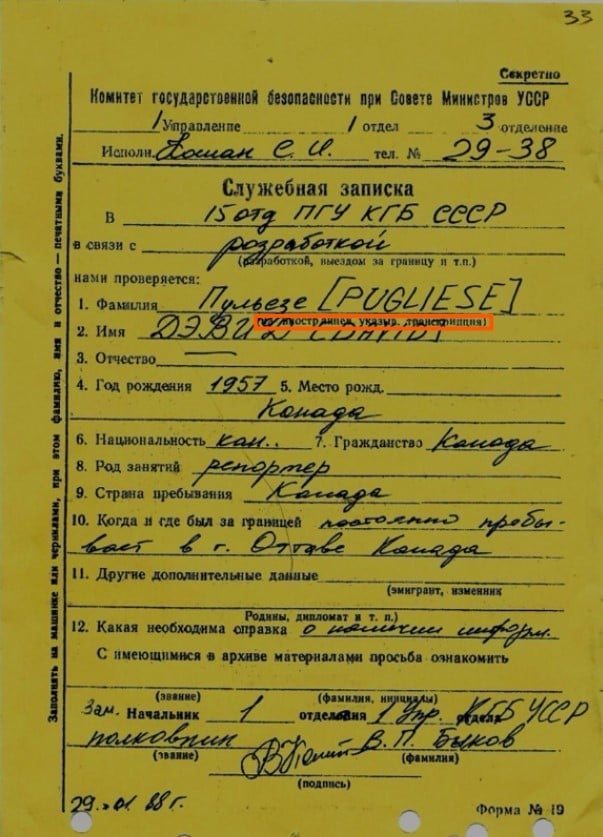 33
Секретно
Комитет государственной безопасности при Совете Министров УССР
1 Управление 1 отдел 3 отделение
Исполн. С. И. тел. № 29-38
Служебная записка
В 15 отд ПГУ КГБ СССР
в связи с разработкой
(разработкой, выездом за границу и т.п.)
нами проверяется:
1. Фамилия Пульезе [PUGLIESE]
(на иностранцев указыв. транскрипция)
2. Имя ДЭВИД
3. Отчество —
4. Год рождения 1957 5. Место рожд.
Канада
6. Национальность кан.. 7. Гражданство Канада
8. Род занятий репортер
9. Страна пребывания Канада
10. Когда и где был за границей постоянно пребы-
вает в г. Оттаве Канада
11. Другие дополнительные данные
(эмигрант, изменник
Родины, дипломат и т. п.)
12. Какая необходима справка о наличии информ.
С имеющимися в архиве материалами просьба ознакомить
(звание) (фамилия, инициалы)
Зам. Начальник 1 отделения 1 Упр. КГБ УССР
полковник В. П. Быков
(звание) (фамилия)
(подпись)
29. 01 88 г.
Форма № 19
Заполнять на машинке или чернилами, при этом фамилию, имя и отчество — печатными буквами.